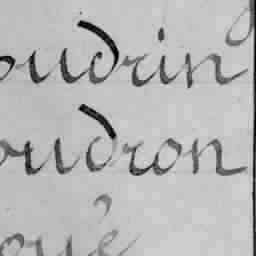 oudrin
oudron
oué